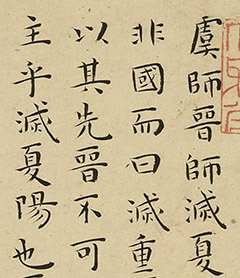 虞師晉師滅夏
非國而曰滅重
以其先晉不可
主乎滅夏陽也